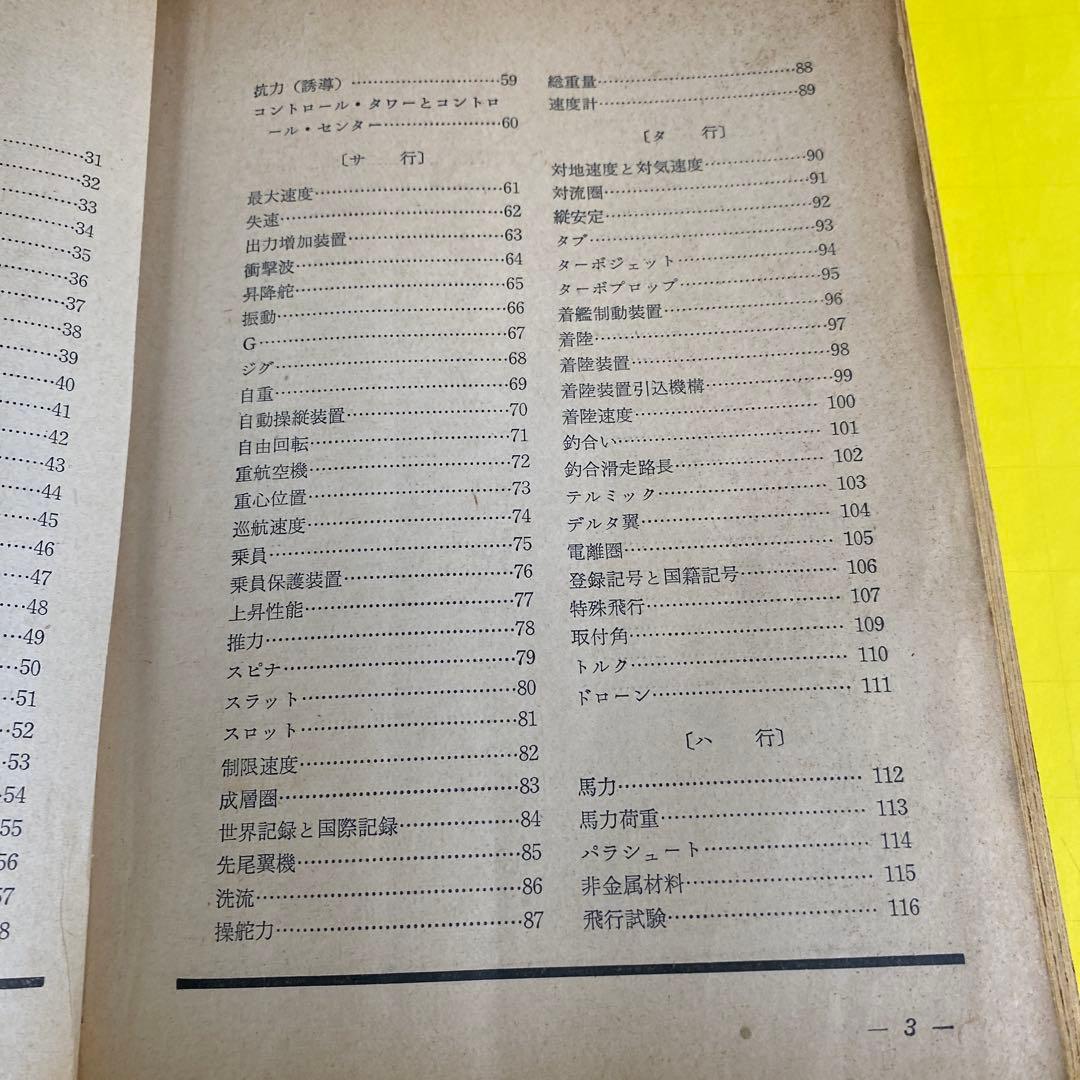 31
32
33
34
35
36
37
38
39
40
41
42
43
44
45
46
47
48
49
50
51
52
53
54
55
56
57
8
抗力（誘導）……………………59
コントロール・タワーとコントロ
ール・センター………………60
〔サ　行〕
最大速度……………………………61
失速…………………………………62
出力増加装置………………………63
衝撃波………………………………64
昇降舵………………………………65
振動…………………………………66
G……………………………………67
ジグ…………………………………68
自重…………………………………69
自動操縦装置………………………70
自由回転……………………………71
重航空機……………………………72
重心位置……………………………73
巡航速度……………………………74
乗員…………………………………75
乗員保護装置………………………76
上昇性能……………………………77
推力…………………………………78
スピナ………………………………79
スラット……………………………80
スロット……………………………81
制限速度……………………………82
成層圏………………………………83
世界記録と国際記録………………84
先尾翼機……………………………85
洗流…………………………………86
操舵力………………………………87
総重量………………………………88
速度計………………………………89
〔タ　行〕
対地速度と対気速度………………90
対流圏………………………………91
縦安定………………………………92
タブ…………………………………93
ターボジェット……………………94
ターボプロップ……………………95
着艦制動装置………………………96
着陸…………………………………97
着陸装置……………………………98
着陸装置引込機構…………………99
着陸速度……………………………100
釣合い………………………………101
釣合滑走路長………………………102
テルミック…………………………103
デルタ翼……………………………104
電離圏………………………………105
登録記号と国籍記号………………106
特殊飛行……………………………107
取付角………………………………109
トルク………………………………110
ドローン……………………………111
〔ハ　行〕
馬力…………………………………112
馬力荷重……………………………113
パラシュート………………………114
非金属材料…………………………115
飛行試験……………………………116
— 3 —